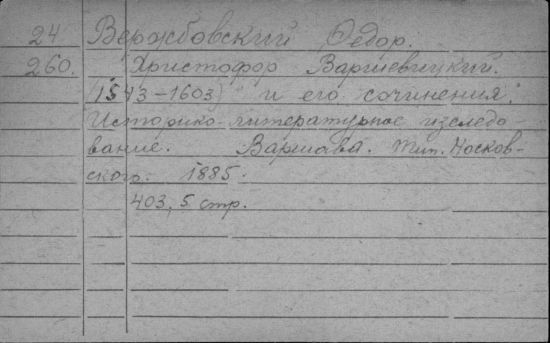 24 Вержбовский Федор.
260. Христофор Варшевицкий.
(1543-1603) и его сочинения.
Историко-литературное изследо-
вание. Варшава. Тип. Носков-
ского. 1885.
403, 5 стр.